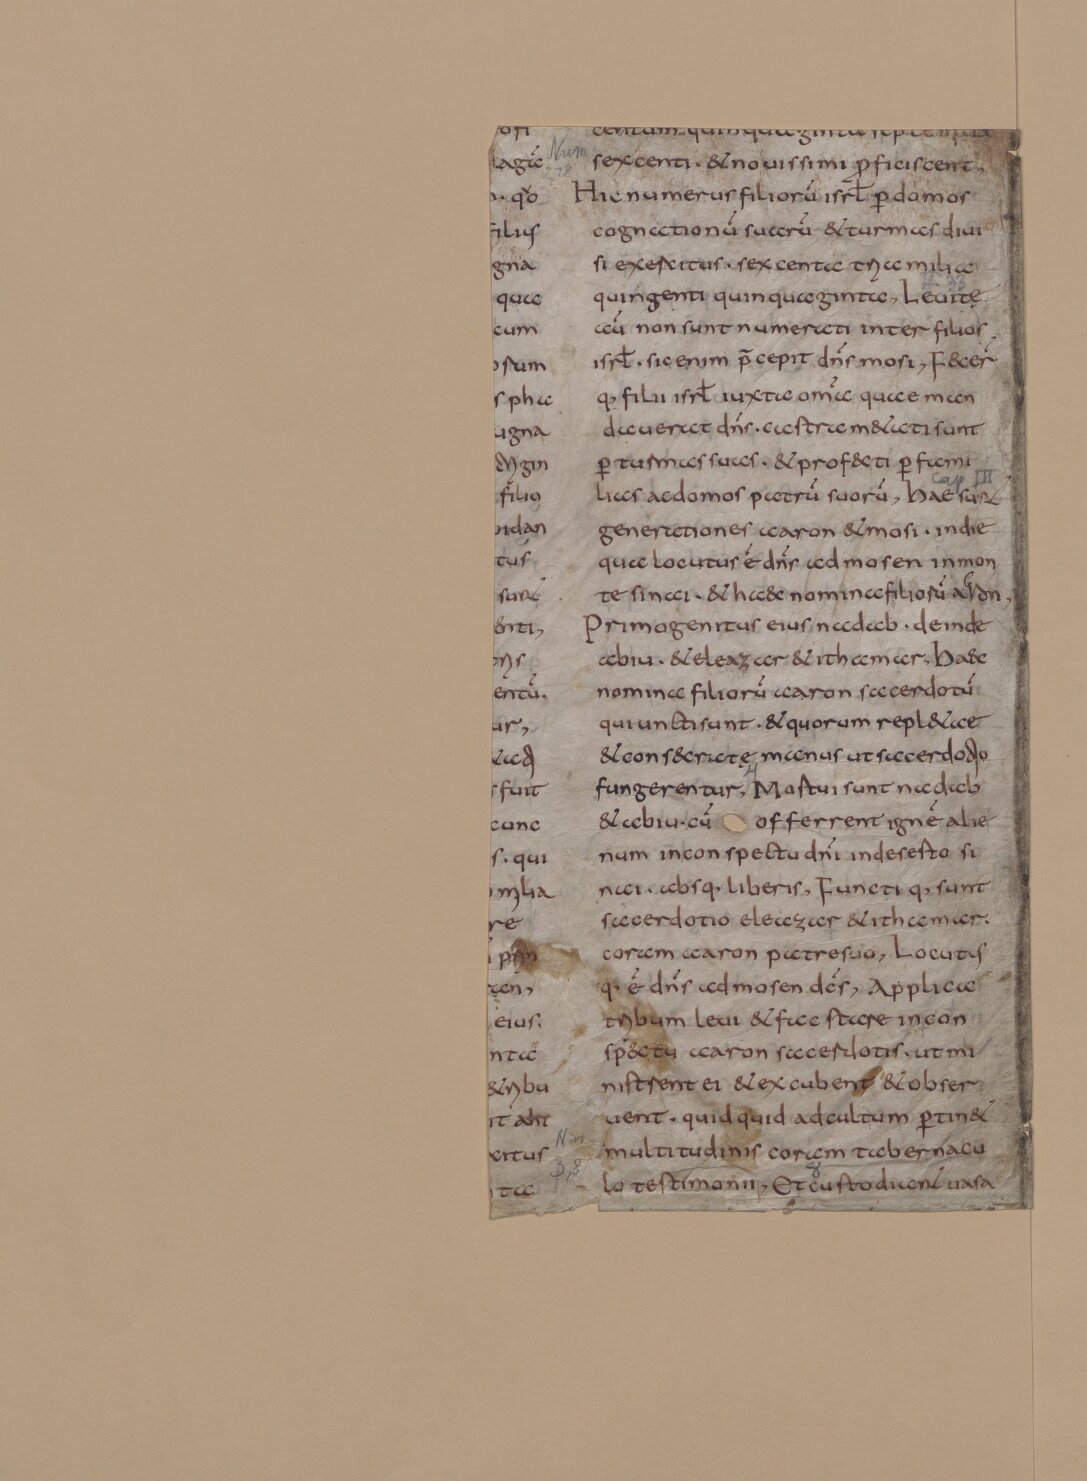 ofi
lagiē
. qđo
filius
gna
quae
cum
osum
s pha
ugna
filius
oidan
tus
enti,
entū.
ur,
s fuit
cunc
s. qui
re
eius.
ntae
&ribu
it alii
citus
tae
Num
centum quinquaginta septem milia
sexcenti . & novissimi ꝓficiscent,
Hic numerus filiorū isrł ꝑ domos
cognationū suarū & turmas divi
si exercitus . sexcenta tria milia
quingenti quinquaginta, Levitę
aū non sunt numerati inter filios
isrł . sic enim p̄cepit dn̄s mosi, Fecer̄
q, filii isrł iuxta om̄ia quae man
daverat dn̄s . castra metati sunt
ꝑ turmas suas . & profecti ꝑ fami
Cap III
lias ac domos patrū suorū, Hae sun&
generationes aaron & mosi . in die
qua locutus ē dn̄s ad mosen in mon
te sinai . & haec nomina filiorū aaron,
Primogenitus eius nadab . deinde
abiu . & eleazar & ithamar, Haec
nomina filiorū aaron sacerdotū
qui uncti sunt . & quorum repletae
& consecratę manus ut sacerdotio
fungerentur, Mortui sunt nadab
& abiu . cū offerrent ignē alie
num in conspectu dn̄i in deserto si
nai . absq, liberis, Functi q, sunt
sacerdotio eleazar & ithamar.
coram aaron patre suo, Locutus
q, ē dn̄s ad mosen dc̄s, Applica
tribum levi & fac stare in con
spectu aaron sacerdotis . ut mi
nistrent ei & excubent & obser
vent . quidquid ad cultum ꝑtin&
multitudinis coram tabernacu
Num
3,8
lo testimonii, Et custodiant vasa